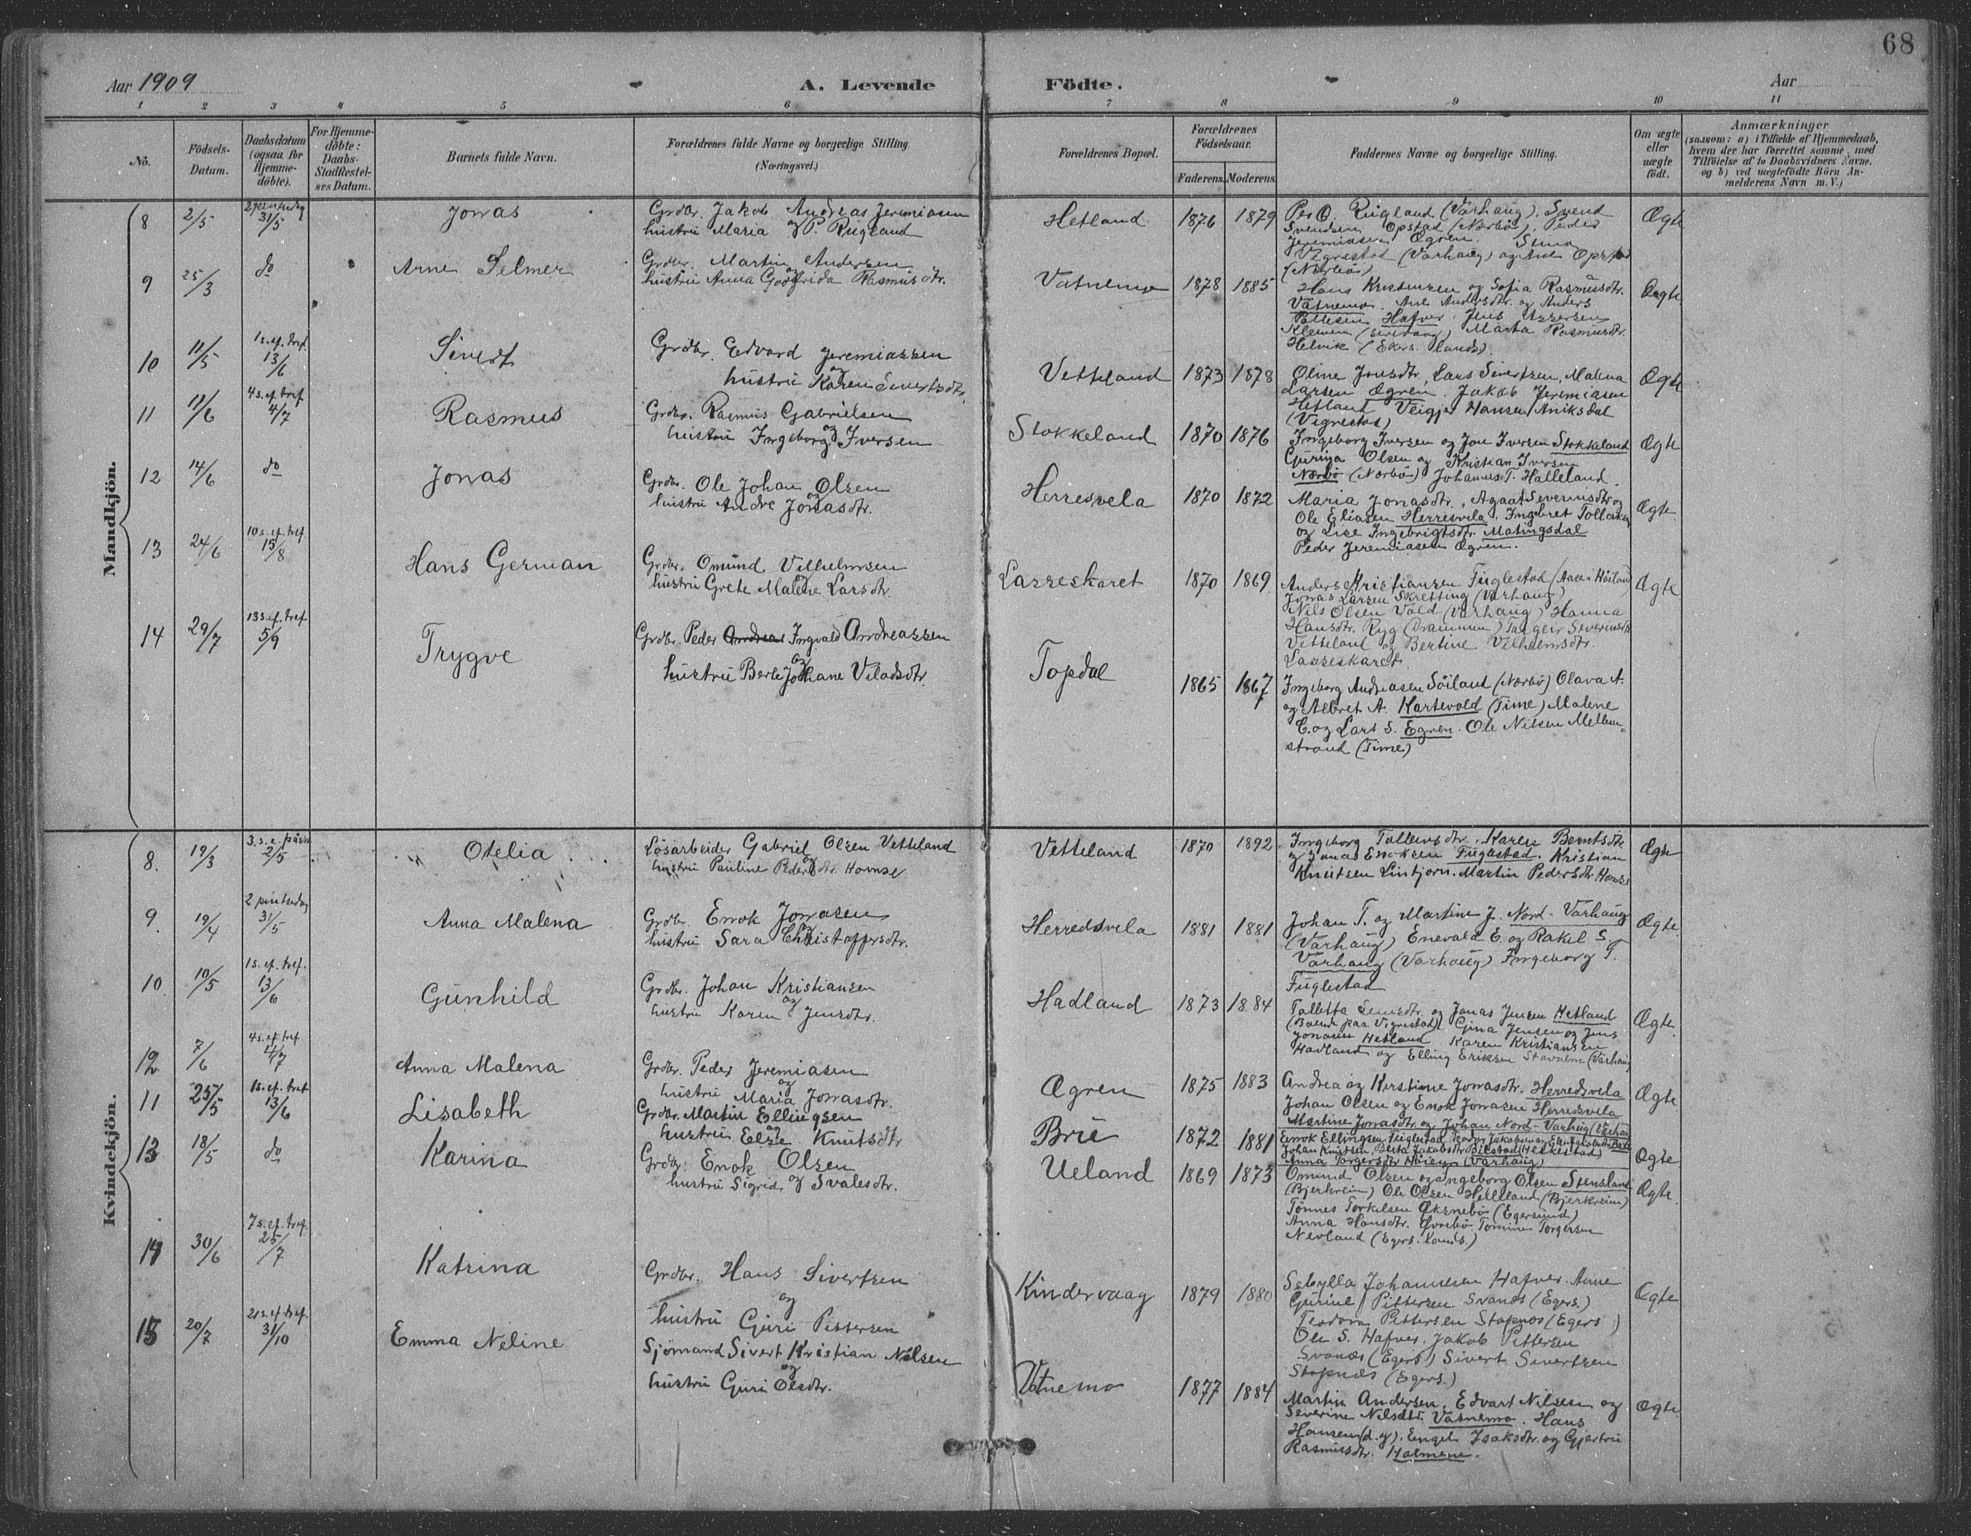 68
Aar 1909 A. Levende Födte. Aar
1 2 3 4 5 6 7 8 9 10 11
No.
Födsels-Datum.
Daabsdatum (ogsaa for Hjemme-döbte).
For Hjemme-döbte: Daabs-Stadfæstel-ses Datum.
Barnets fulde Navn.
Forældrenes fulde Navne og borgerlige Stilling.
(Næringsvei.)
Forældrenes Bopæl.
Forældrenes Födselsaar.
Faderens. Moderens.
Faddernes Navne og borgerlige Stilling.
Om ægte eller uægte födt.
Anmærkninger
(saasom: a) i Tilfælde af Hjemmedaab,
hvem der har forrettet samme, med
Tilföielse af to Daabsvidners Navne,
og b) ved uægtefödte Börn An-
melderens Navn m. V.)
Mandkjön.
8 2/5 2 pintsedag 31/5 Jonas
Grdbr. Jakob Andreas Jeremiasen
og
hustru Maria P. Rugland
Hetland 1876 1879
Per O. Rugland (Varhaug). Svend
Svendsen Opstad (Nærbö). Peder
Jeremiasen Ægren. Stina
Vigrestad (Varhaug) og Ane Opstad
(Nærbö)
Ægte
9 25/3 do Arne Selmer
Grdbr. Martin Andersen
og
hustru Anna Godfrida Rasmusdtr.
Vatnemo 1878 1885
Hans Kristensen og Sofia Rasmusdtr.
Vatnemo. Ane Andersdtr. og Anders
Pallesen Hafver. Jens
Kleiven Marta Rasmusdtr.
Helvik (Ekers. lands).
Ægte
10 11/5 1 s. ef. tref. 13/6 Sivert
Grdbr. Edvard Jeremiassen
og
hustru Karen Sivertsdtr.
Vetteland 1873 1878
Oline Jonsdtr, Lars Sivertsen, Malena
Larsen Ægren. Jakob Jeremiasen
Hetland Veigjer Hansen Aniksdal
(Vigrestad)
Ægte
11 11/6 4 s. ef. tref. 4/7 Rasmus
Grdbr. Rasmus Gabrielsen
og
hustru Ingeborg Iversen
Stokkeland 1870 1876
Ingeborg Iversen og Jon Iversen Stokkeland
Guriga Olsen og Kristian Iversen
Nærbö (Nærbö) Johannes T. Halleland.
Ægte
12 14/6 do Jonas
Grdbr. Ole Johan Olsen
og
hustru Andre Jonasdtr.
Herresvela 1870 1872
Maria Jonasdtr, Agaat Severinsdtr og
Ole Eliasen Herresvela. Ingebret Tollaksen
og Lise Ingebrigtsdtr Matingsdal
Peder Jeremiasen Ægren.
Ægte
13 24/6 10 s. ef. tref. 15/8 Hans German
Grdbr. Omund Vilhelmsen
og
hustru Grete Malene Larsdtr.
Lasseskaret 1870 1869
Anders Kristiansen Fuglestad
Jonas Larsen Skretting (Varhaug)
Nils Olsen Vold (Varhaug) Hanna
Hansdtr. Ryg (Drammen) Tanger Severinsdtr
Vetteland og Bertine Vilhelmsdtr.
Lasseskaret.
Ægte
14 29/7 13 s. ef. tref. 5/9 Trygve
Grdbr. Peder Andreas Ingvald Andreassen
og
hustru Berte Johane Viladsdtr.
Topdal 1865 1867
Ingeborg Andreasen Söiland (Nærbö) Olava A.
og Albret A. Kartevold (Time) Malene
C. og Lars S. Egren. Ole Nilsen Mellem-
strand (Time)
Kvindekjön.
8. 19/3 3. s. e. paaske 2/5 Otelia
Lösarbeider Gabriel Olsen Vetteland
og
hustru Pauline Pedersdtr. Hovnse
Vetteland 1870 1892
Ingeborg Tallevsdtr, Karen Berntsdtr
og Jonas Enoksen Fuglestad. Kristian
Knutsen Linbjorn. Martin Pedersdtr
Ægte
9. 19/4 2 pintsedag 31/5 Anna Malena
Grdbr. Enok Jonasen
og
hustru Sara Christoffersdtr.
Herredsvela 1881 1881
Johan T. og Martine J. Nord-Varhaug
(Varhaug) Enevald E. og Rakel S.
Varhaug (Varhaug) Ingeborg T.
Fuglestad
Ægte
10 10/5 1 s. ef. tref. 13/6 Gunhild
Grdbr. Johan Kristiansen
og
hustru Karen Jensdtr.
Hadland 1873 1884
Talletta Jensdtr. og Jonas Jensen Hetland
Gina Jensen og Jens
Jonasen Hetland Karen Kristiansen
Hadland og Elling Eriksen Stavnem (Varhaug)
Ægte.
12 7/6 4 s. ef. tref. 4/7 Anna Malena
Grdbr. Peder Jeremiasen
og
hustru Maria Jonasdtr.
Ægren 1875 1883
Andrea og Kirstine Jonasdtr. Herredsvela
Johan Olsen og Enok Jonasen Herredsvela
Martine Jonasdtr. og Johan Nord-Varhaug
Ægte
11 25/5 1 s. ef. tref. 13/6 Lisabeth
Grdbr. Martin Ellingsen
og
hustru Else Knutsdtr
Brü 1872 1881
Enok Ellingsen Fuglestad
Johan Knutsen, Berta Jakobsdtr Bilstad (Heskestad)
Anna Torgersdtr (Varhaug)
Ægte
13 18/5 do Karina
Grdbr. Enok Olsen
og
hustru Sigrid Svalesdtr.
Ueland 1869 1873
Omund Olsen og Ingeborg Olsen Stensland
(Bjerkreim) Ole Olsen Helleland (Bjerkreim)
Tönnes Torkelsen Öksnebö (Egersund)
Anna Hansdtr. Övrebö Tomine Torgersen
Nevland (Egers. lands.)
Ægte.
14 30/6 7 s. ef. tref. 25/7 Katrina
Grdbr. Hans Sivertsen
og
hustru Guri Pettersen
Kindervaag 1879 1880
Sebylla Johannesen Hafver. Anne
Gurine Pittersen Svanes (Egers.)
Teodora Pittersen Stapnes (Egers.)
Ole S. Hafver. Jakob Pittersen
Svanes (Egers.) Sivert Sivertsen
Stapnes (Egers.)
Ægte
15 20/7 21 s. ef. tref. 31/10 Emma Neline
Sjömand Sivert Kristian Nilsen
og
hustru Guri Olsdtr.
Vatnemo 1877 1884
Martin Andersen, Edvart Nilsen og
Severine Nilsdtr. Vatnemo. Hans
Hansen (d. y). Engel Isaksdtr. og Gjertru
Rasmusdtr. Holmene.
Ægte